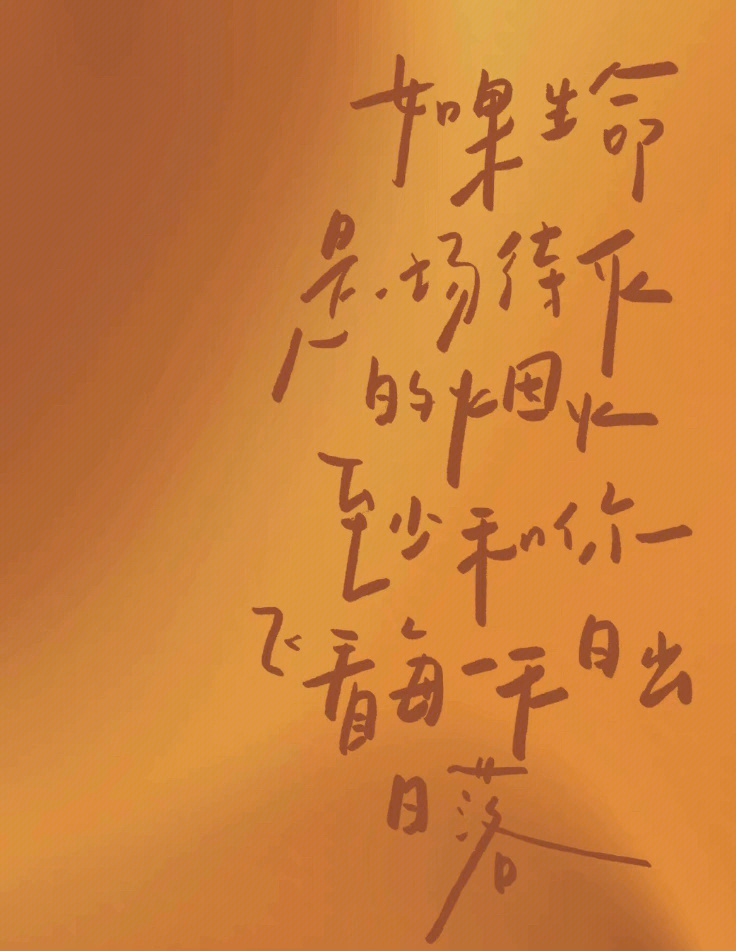 如果生命
是一场待灭
的烟火
至少和你一
飞看每一天日出
日落